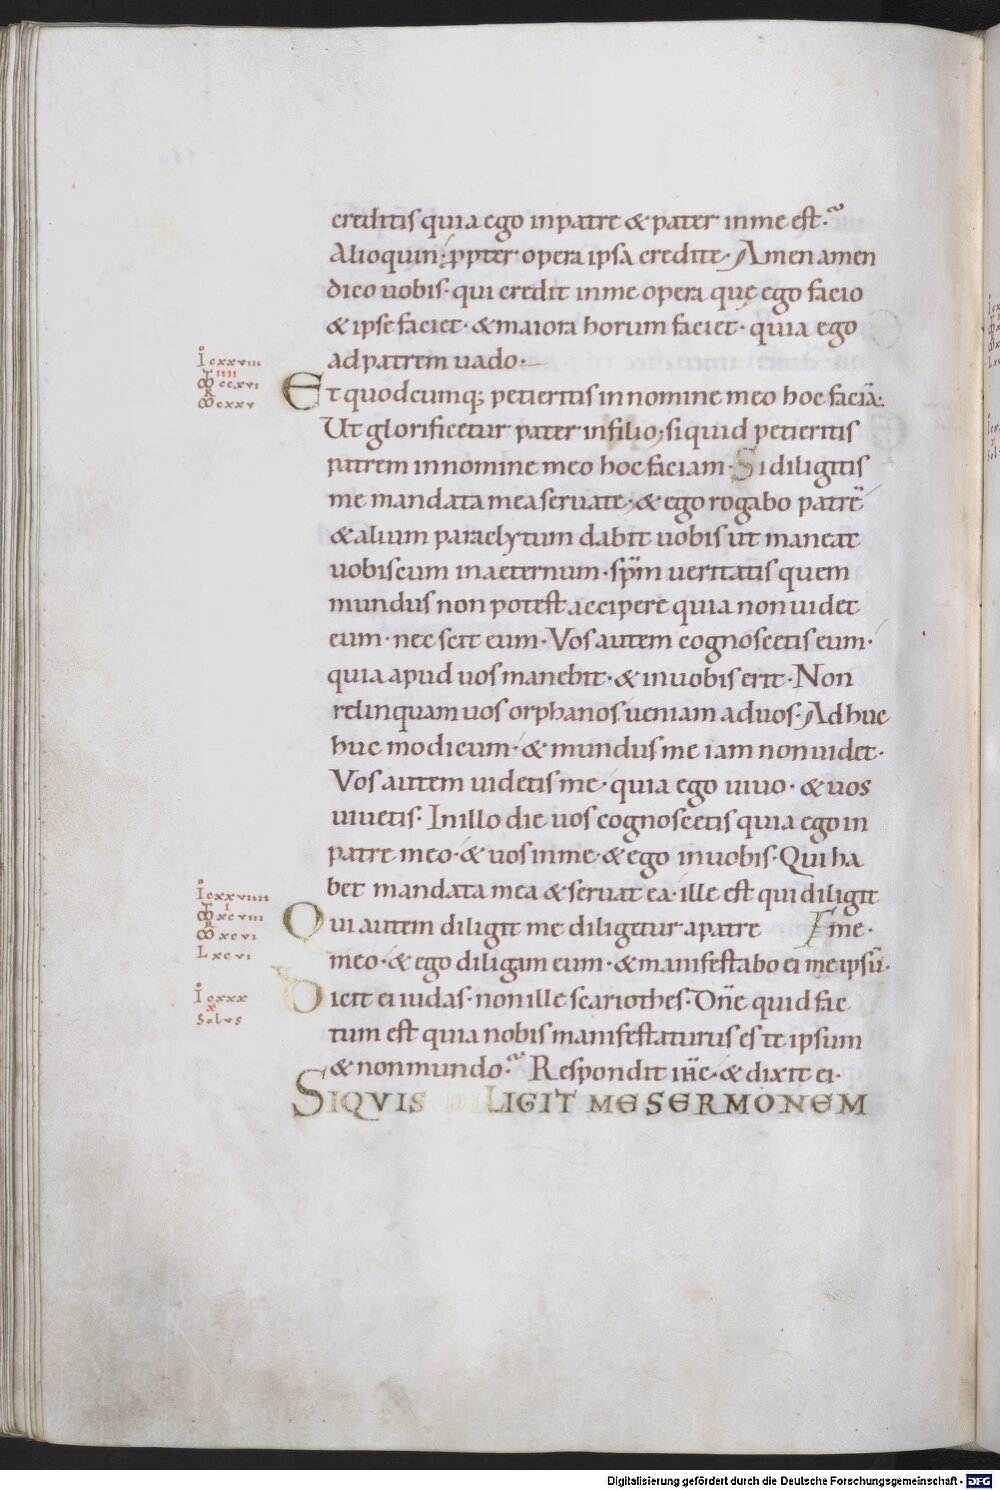 creditis quia ego in patre & pater in me est·
Alioquin· ꝓpter opera ipsa credite· Amen amen
dico uobis· qui credit in me opera quę ego facio
& ipse faciet· & maiora horum faciet· quia ego
ad patrem uado·
Et quodcumq; petieritis in nomine meo hoc faciā·
Ut glorificetur pater in filio; si quid petieritis
patrem in nomine meo hoc faciam· Si diligitis
me mandata mea seruate· & ego rogabo patrē
& alium paraclytum dabit uobis ut maneat
uobiscum in aeternum· sp̄m ueritatis quem
mundus non potest accipere quia non uidet
eum· nec scit eum· Vos autem cognoscetis eum·
quia apud uos manebit· & in uobis erit· Non
relinquam uos orphanos ueniam ad uos· Adhuc
huc modicum· & mundus me iam non uidet·
Vos autem uidetis me· quia ego uiuo· & uos
uiuetis· In illo die uos cognoscetis quia ego in
patre meo· & uos in me· & ego in uobis· Qui ha
bet mandata mea & seruat ea· ille est qui diligit
Qui autem diligit me diligetur a patre me·
meo· & ego diligam eum· & manifestabo ei me ipsū·
Dicit ei iudas· non ille scariothes· Dn̄e quid fac
tum est quia nobis manifestaturus es te ipsum
& non mundo· Respondit ih̄c· & dixit ei·
SIQVIS DILIGIT ME SERMONEM
I cxxviii
IIII
ccxvi
cxxv
I cxxviiii
I
xcviii
xcvi
L xcvi
I cxxx
X
Solus
Digitalisierung gefördert durch die Deutsche Forschungsgemeinschaft - DFG